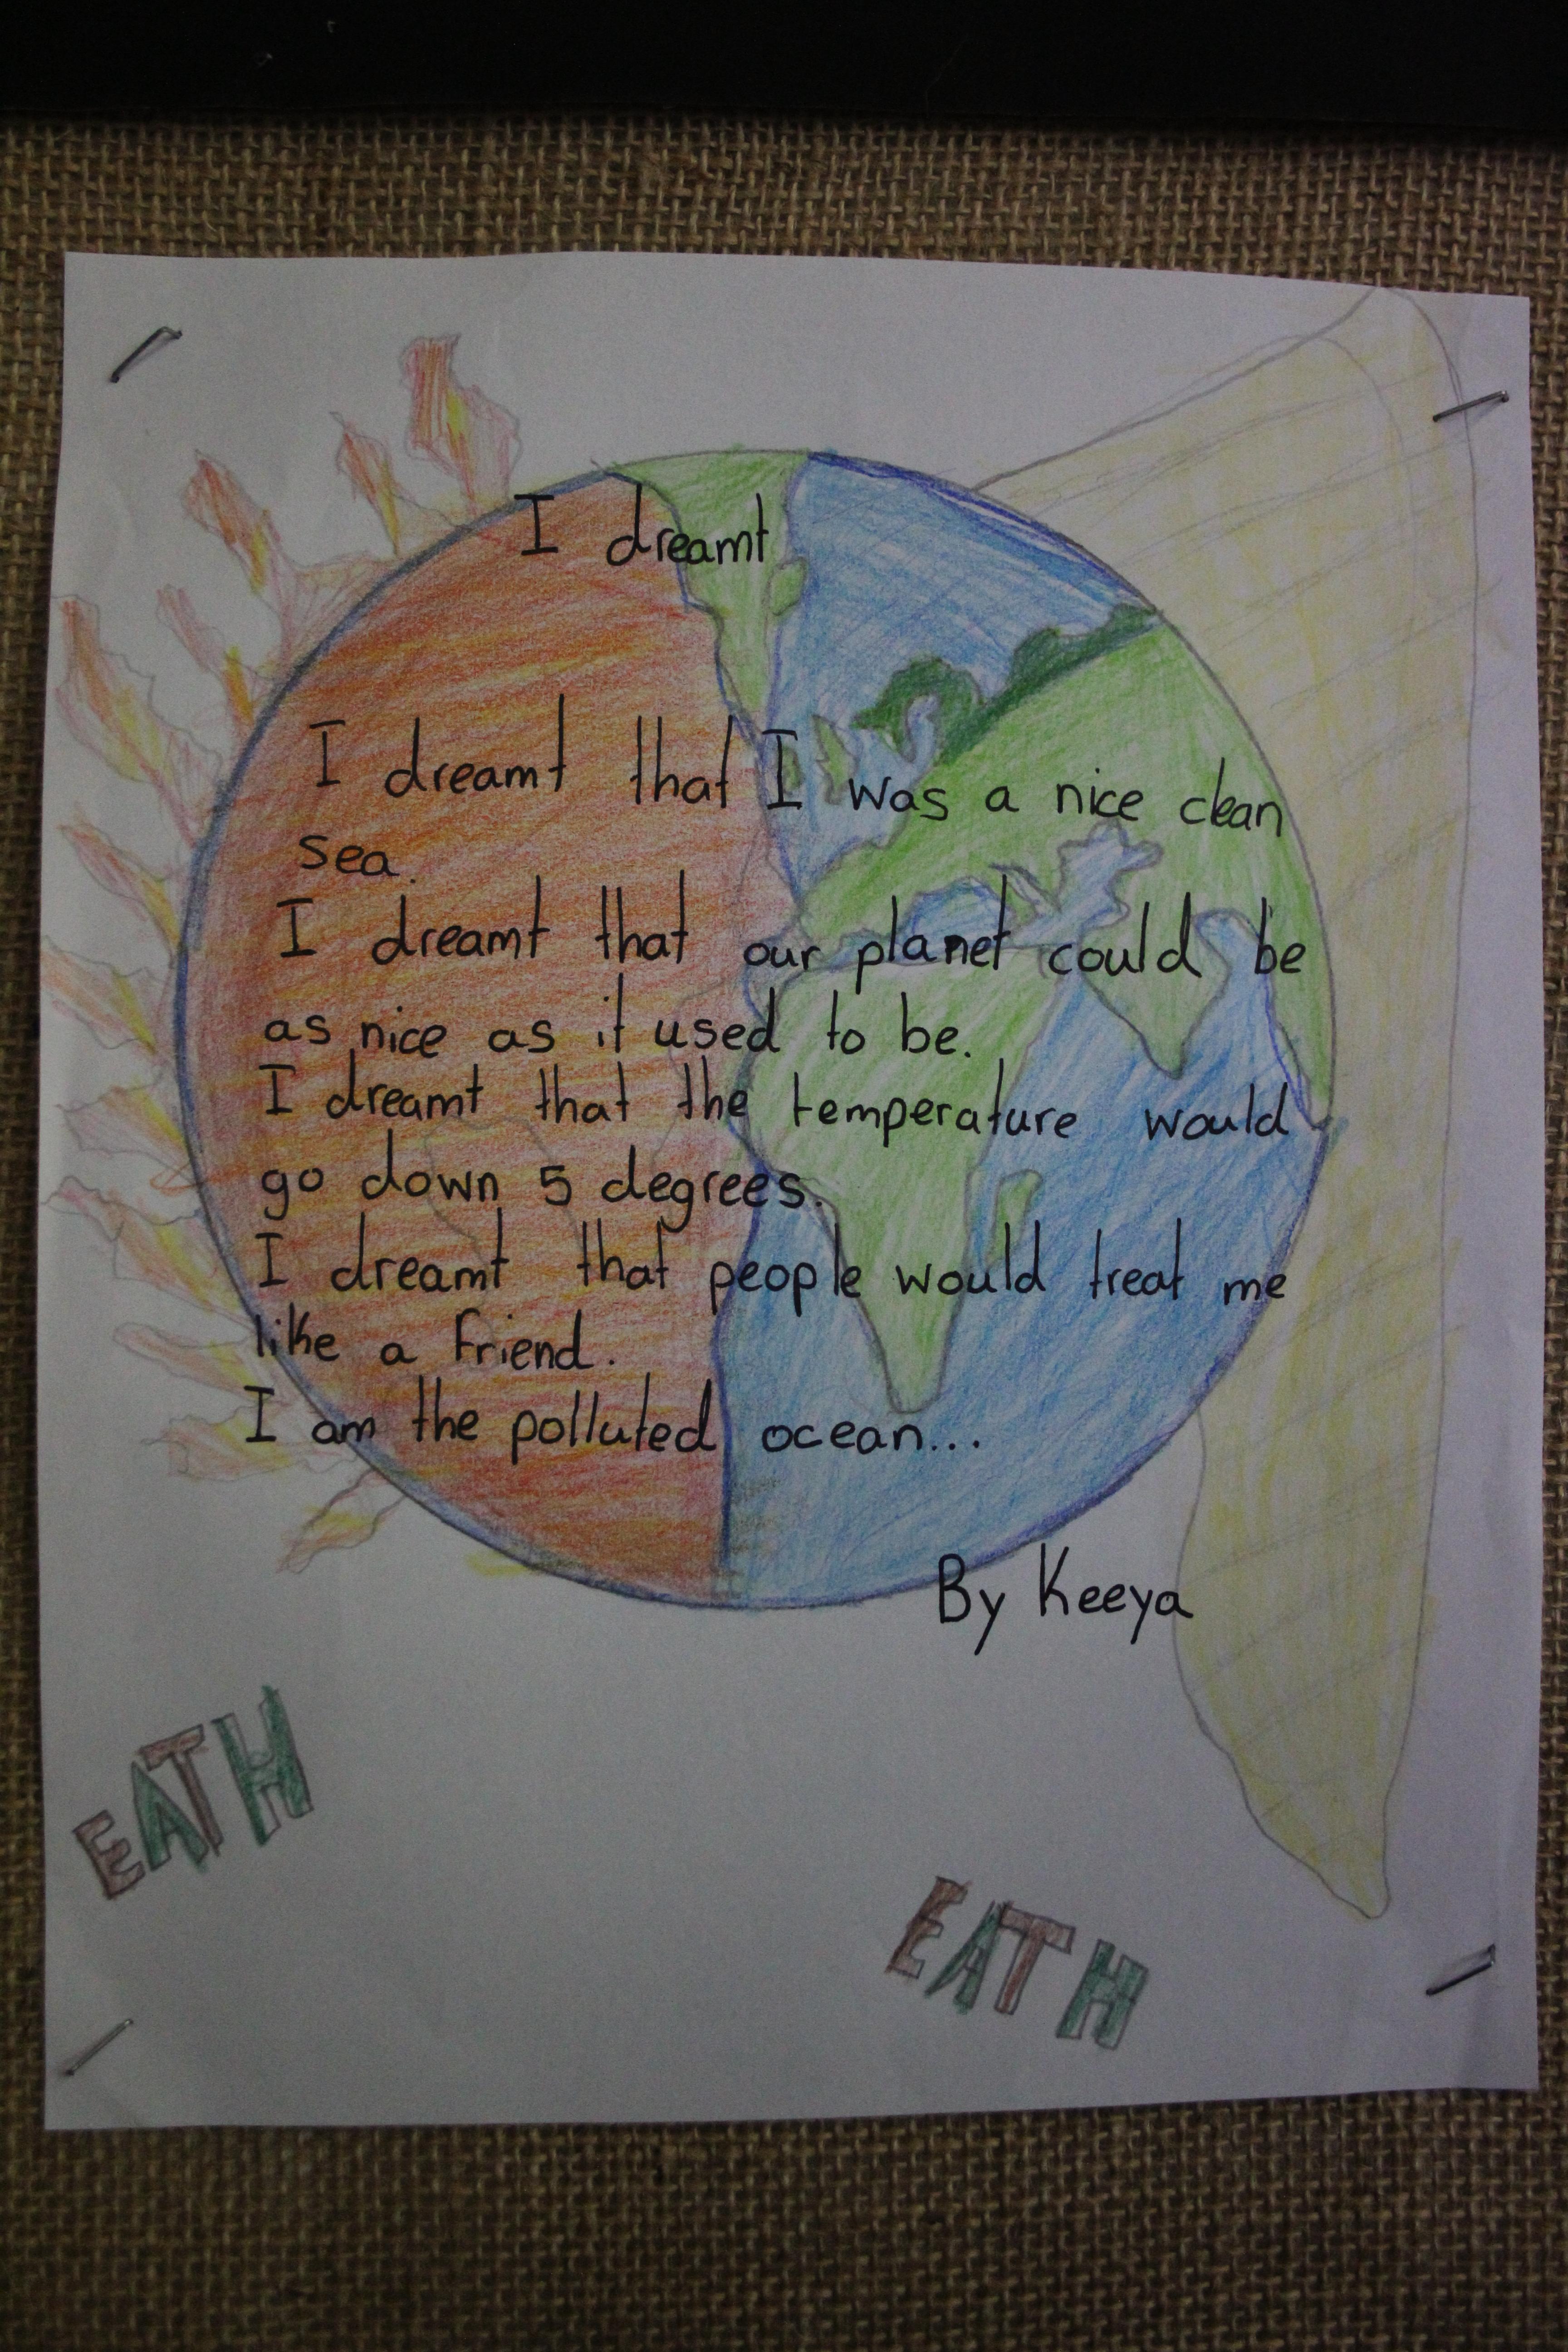 I dreamt
I dreamt that I was a nice clean
sea.
I dreamt that our planet could be
as nice as it used to be.
I dreamt that the temperature would
go down 5 degrees.
I dreamt that people would treat me
like a friend.
I am the polluted ocean...
By Keeya
EATH
EATH